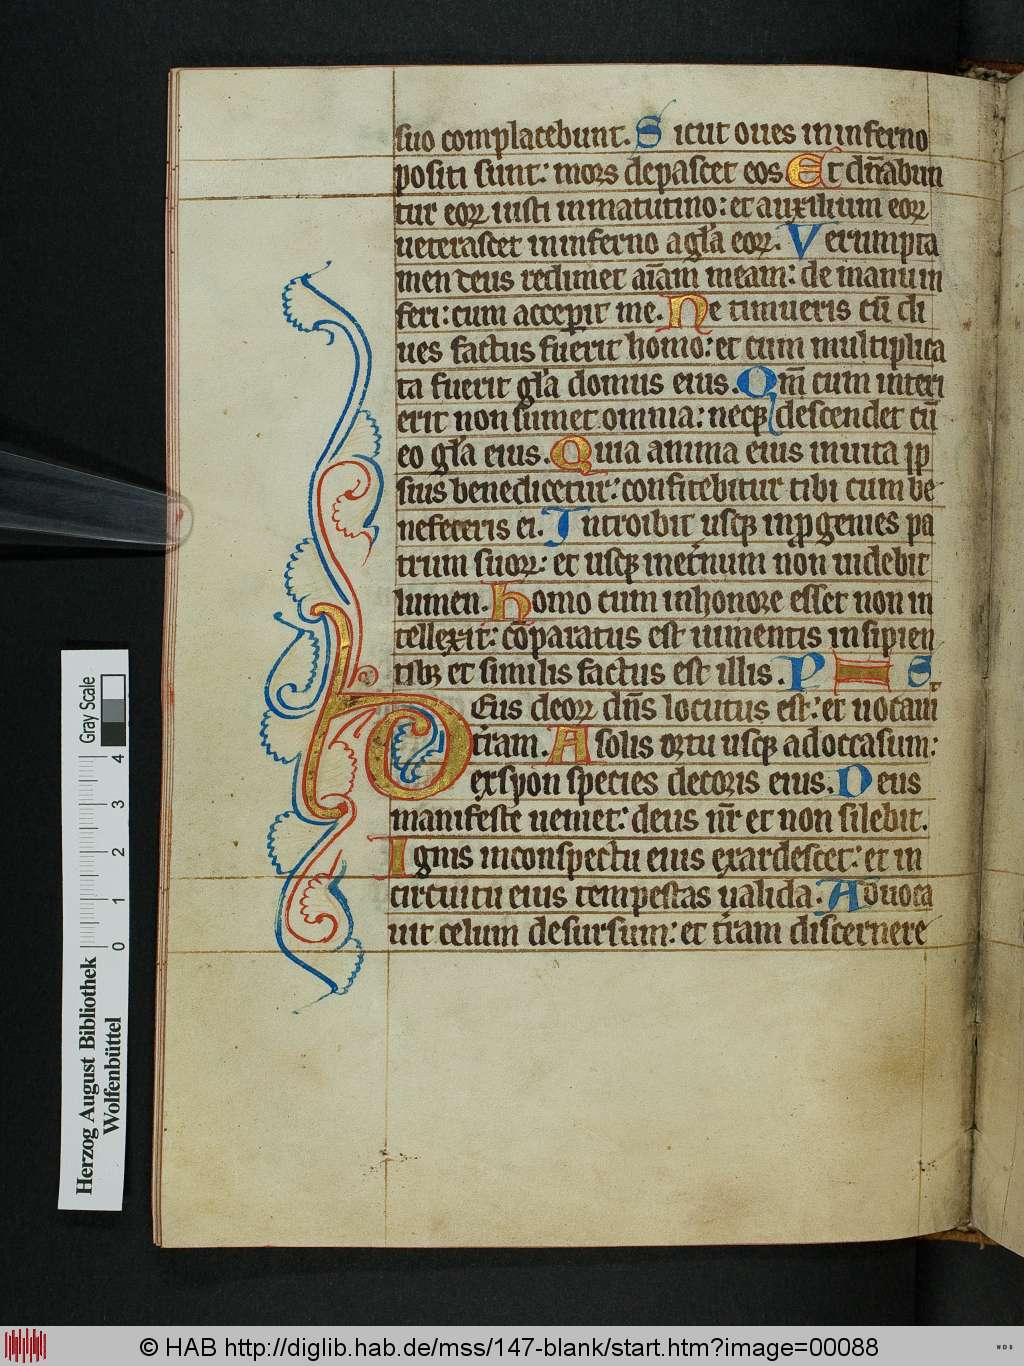 suo complacebunt. Sicut oues in inferno
positi sunt: mors depascet eos Et dn̄abun
tur eoꝝ iusti in matutino: et auxilium eoꝝ
ueterascet in inferno a gl̄a eoꝝ. Verumpta
men deus redimet aīam meam: de manu in
feri: cum acceperit me. Ne timueris cū di
ues factus fuerit homo: et cum multiplica
ta fuerit gl̄a domus eius. Qm̄ cum interi
erit non sumet omnia: neqꝫ descendet cū
eo gl̄a eius. Quia anima eius in uita ip
sius benedicetur: confitebitur tibi cum be
nefeceris ei. Introibit usqꝫ in ꝓgenies pa
trum suoꝝ: et usqꝫ inet̄num non uidebit
lumen. Homo cum in honore esset non in
tellexit: cōparatus est iumentis insipien
tibꝫ et similis factus est illis. PS
Deus deoꝝ dn̄s locutus est: et uocauit
t̄ram. A solis ortu usqꝫ ad occasum:
ex syon species decoris eius. Deus
manifeste ueniet: deus nr̄ et non silebit.
Ignis in conspectu eius exardescet: et in
circuitu eius tempestas ualida. Aduoca
uit celum desursum: et t̄ram discernere
Gray Scale
4
3
2
1
0
Herzog August Bibliothek
Wolfenbüttel
© HAB http://diglib.hab.de/mss/147-blank/start.htm?image=00088
HAB